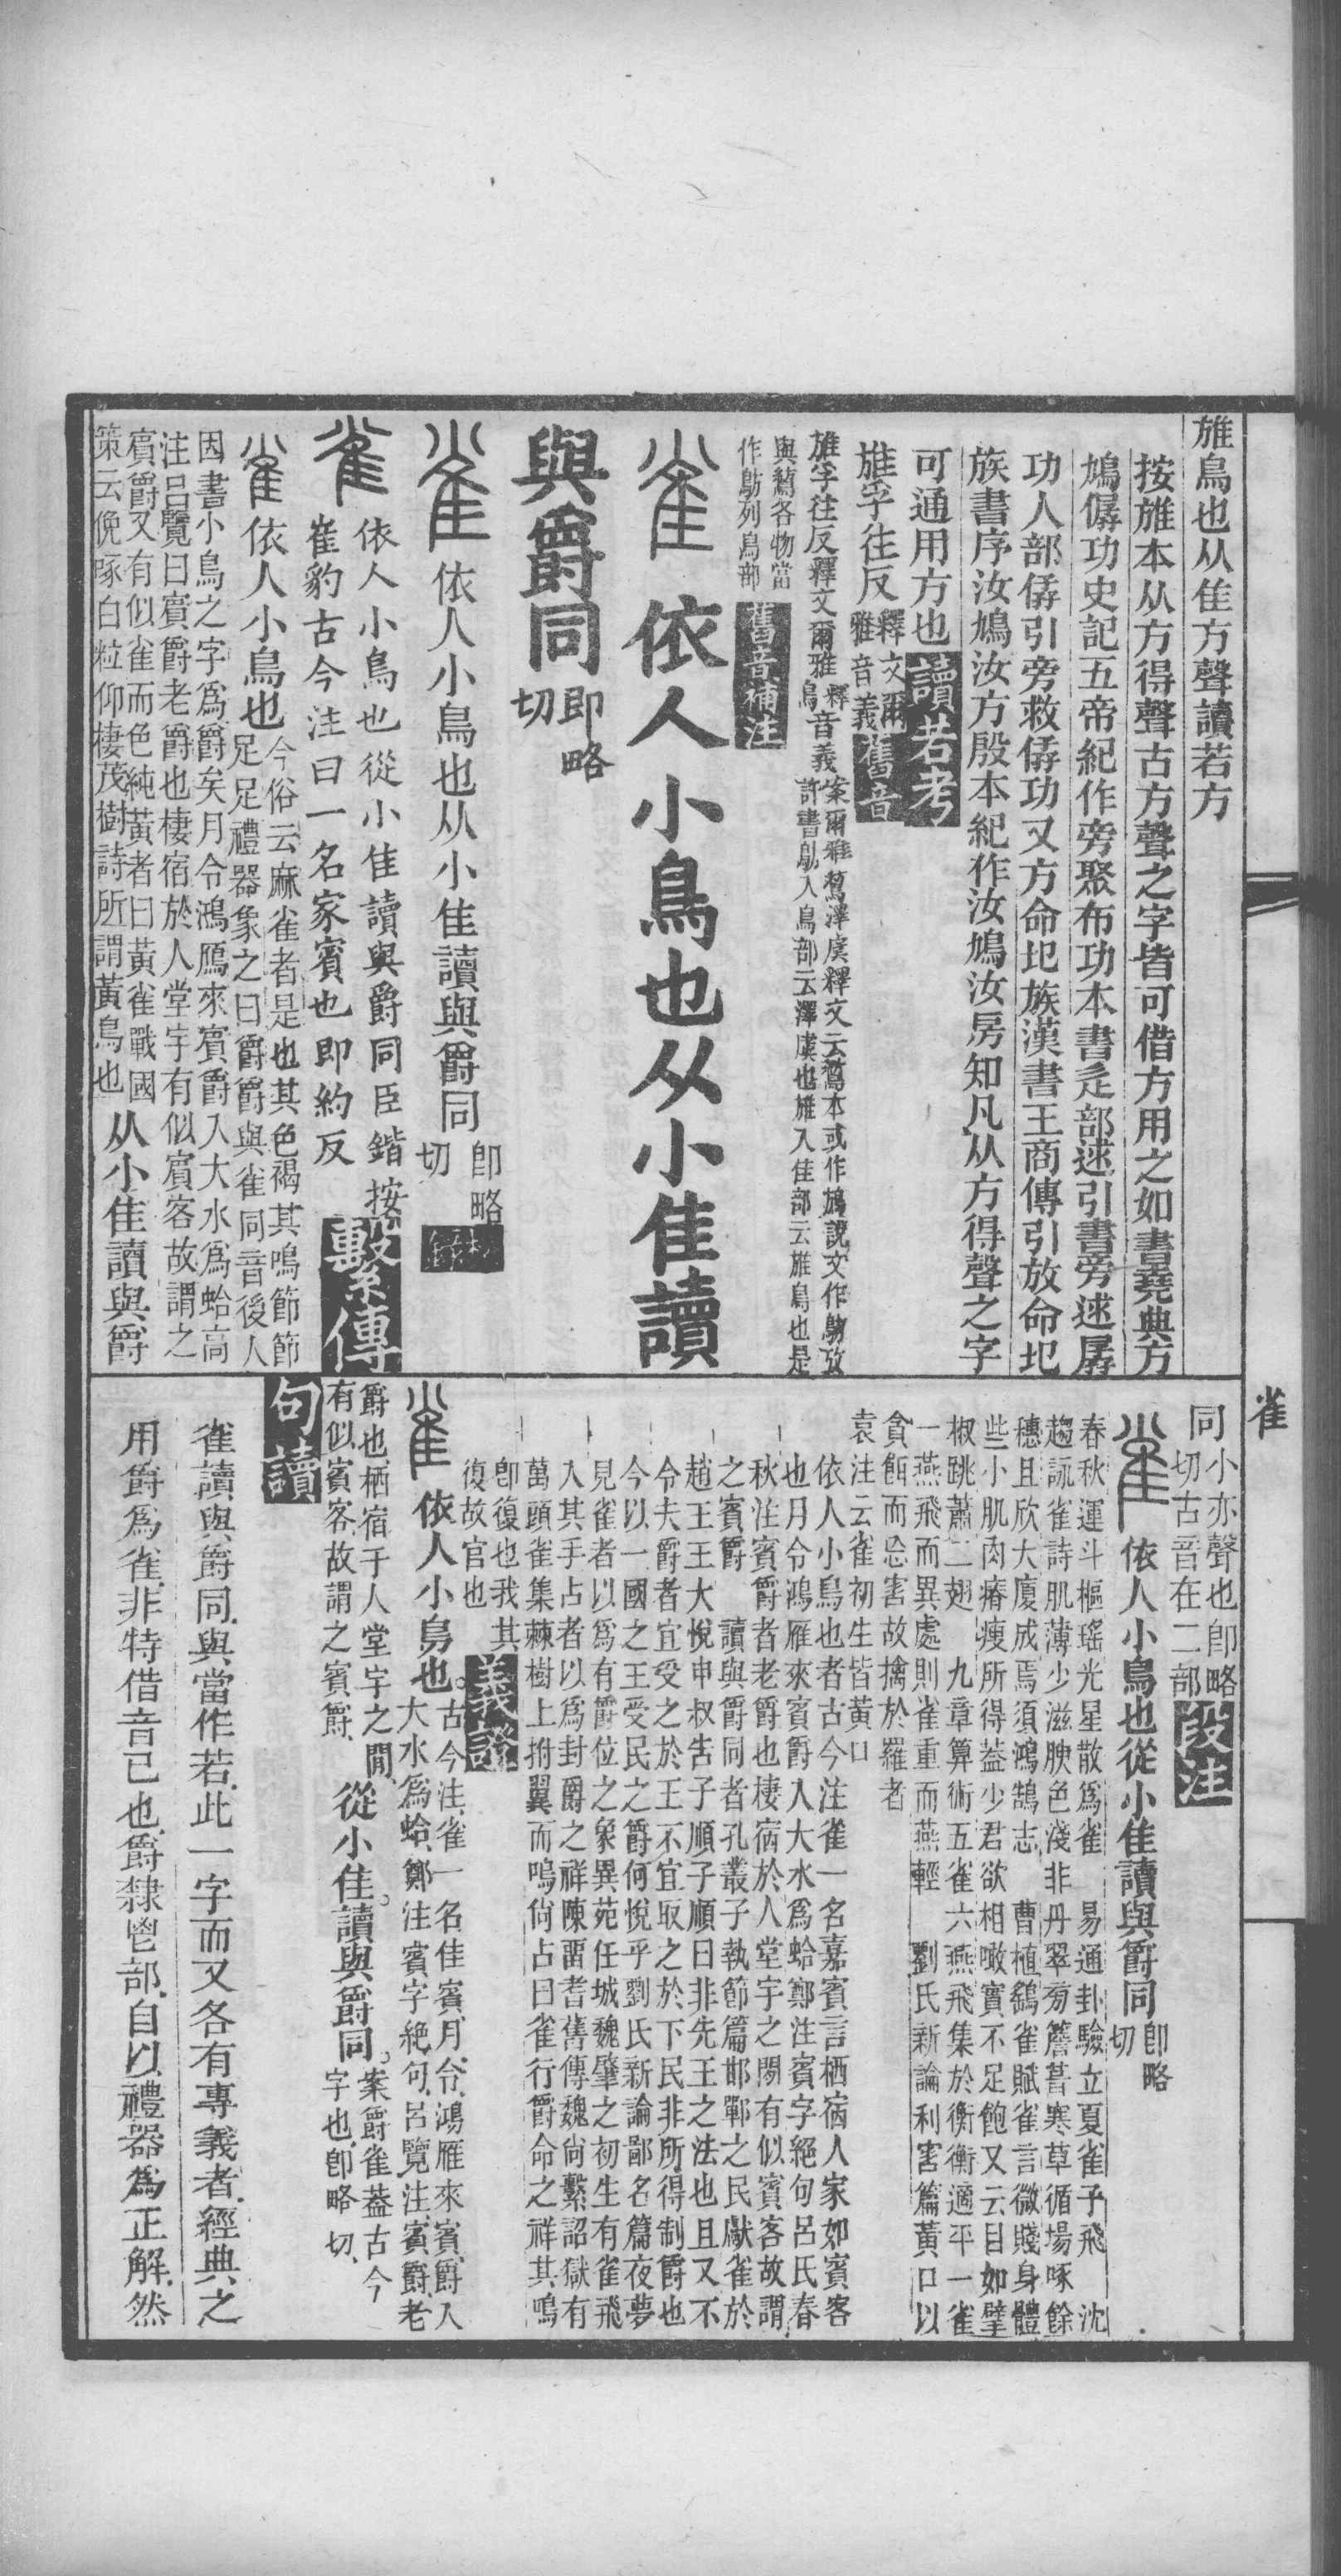 雃鳥也从隹方聲讀若方
按雃本从方得聲古方聲之字皆可借方用之如書堯典方
鳩僝功史記五帝紀作旁聚布功本書辵部逑引書旁逑孱
功人部僝引旁救僝功又方命圯族漢書王商傳引放命圯
族書序汝鳩汝方殷本紀作汝鳩汝房知凡从方得聲之字
可通用方也讀若考
雃孚往反
釋文爾
雅音義舊音
雃孚往反釋文爾雅
釋
鳥
音義
案爾雅鶭澤虞釋文云鶭本或作鴋說文作鴋攷
許書鴋入鳥部云澤虞也雃入隹部云雃鳥也是
與鶭各物當
作鴋列鳥部
舊音補注
雀依人小鳥也从小隹讀
與爵同
即略
切
雀依人小鳥也从小隹讀與爵同
卽略
切
雀
依人小鳥也從小隹讀與爵同臣鍇按
崔豹古今注曰一名家賓也即約反
繫傳
雀依人小鳥也
今俗云麻雀者是也其色褐其鳴節節
足足禮器象之曰爵爵與雀同音後人
因書小鳥之字爲爵矣月令鴻鴈來賓爵入大水爲蛤高
注呂覽曰賓爵老爵也棲宿於人堂宇有似賓客故謂之
賓爵又有似雀而色純黃者曰黃雀戰國
策云俛啄白粒仰棲茂樹詩所謂黃鳥也
从小隹讀與爵
同
小亦聲也卽略
切古音在二部
段注
雀依人小鳥也從小隹讀與爵同
卽略
切
春秋運斗樞瑤光星散爲雀 易通卦驗立夏雀子飛 沈
趨詠雀詩肌薄少滋腴色淺非丹翠旁簷昔寒草循場啄餘
穗且欣大廈成焉須鴻鵠志 曹植鷂雀賦雀言微賤身體
些小肌肉瘠瘦所得蓋少君欲相噉實不足飽又云目如擘
椒跳蕭二翅 九章算術五雀六燕飛集於衡衡適平一雀
一燕飛而異處則雀重而燕輕 劉氏新論利害篇黃口以
貪餌而忘害故擒於羅者
袁注云雀初生皆黃口
依人小鳥也者古今注雀一名嘉賓言栖宿人家如賓客
也月令鴻雁來賓爵入大水爲蛤鄭注賓字絕句呂氏春
秋注賓爵者老爵也棲宿於人堂宇之閒有似賓客故謂
之賓爵 讀與爵同者孔叢子執節篇邯鄲之民獻雀於
趙王王大悅申叔告子順子順曰非先王之法也且又不
令夫爵者宜受之於王不宜取之於下民非所得制爵也
今以一國之王受民之爵何悅乎劉氏新論鄙名篇夜夢
見雀者以爲有爵位之象異苑任城魏肇之初生有雀飛
入其手占者以爲封爵之祥陳畱耆舊傳魏尙繫詔獄有
萬頭雀集棘樹上拊翼而鳴尙占曰雀行爵命之祥其鳴
卽復也我其
復故官也
義證
雀依人小鳥也。
古今注、雀一名佳賓、月令、鴻雁來賓、爵入
大水爲蛤、鄭注賓字絕句、呂覽注、賓爵、老
爵也、栖宿于人堂宇之閒、
有似賓客、故謂之賓爵、
從小隹。讀與爵同。
案爵雀蓋古今
字也、卽略切、
句讀
雀讀與爵同、與當作若、此一字而又各有專義者、經典之
用爵爲雀、非特借音已也、爵隸鬯部、自以禮器爲正解、然
雀